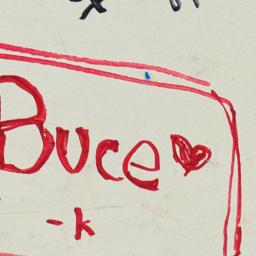 Buce♥
-k